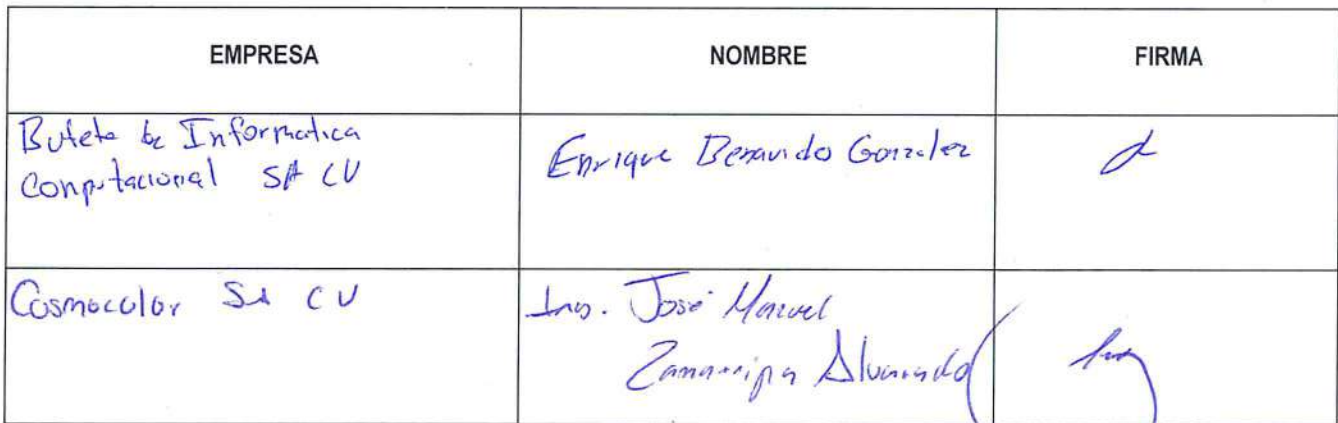 EMPRESA NOMBRE FIRMA
Bufete de Informatica
Computacional SA CV
Enrique Benavido Gonzalez
Cosmocolor SA CV
Ing. José Manuel
Zamarripa Alvarado